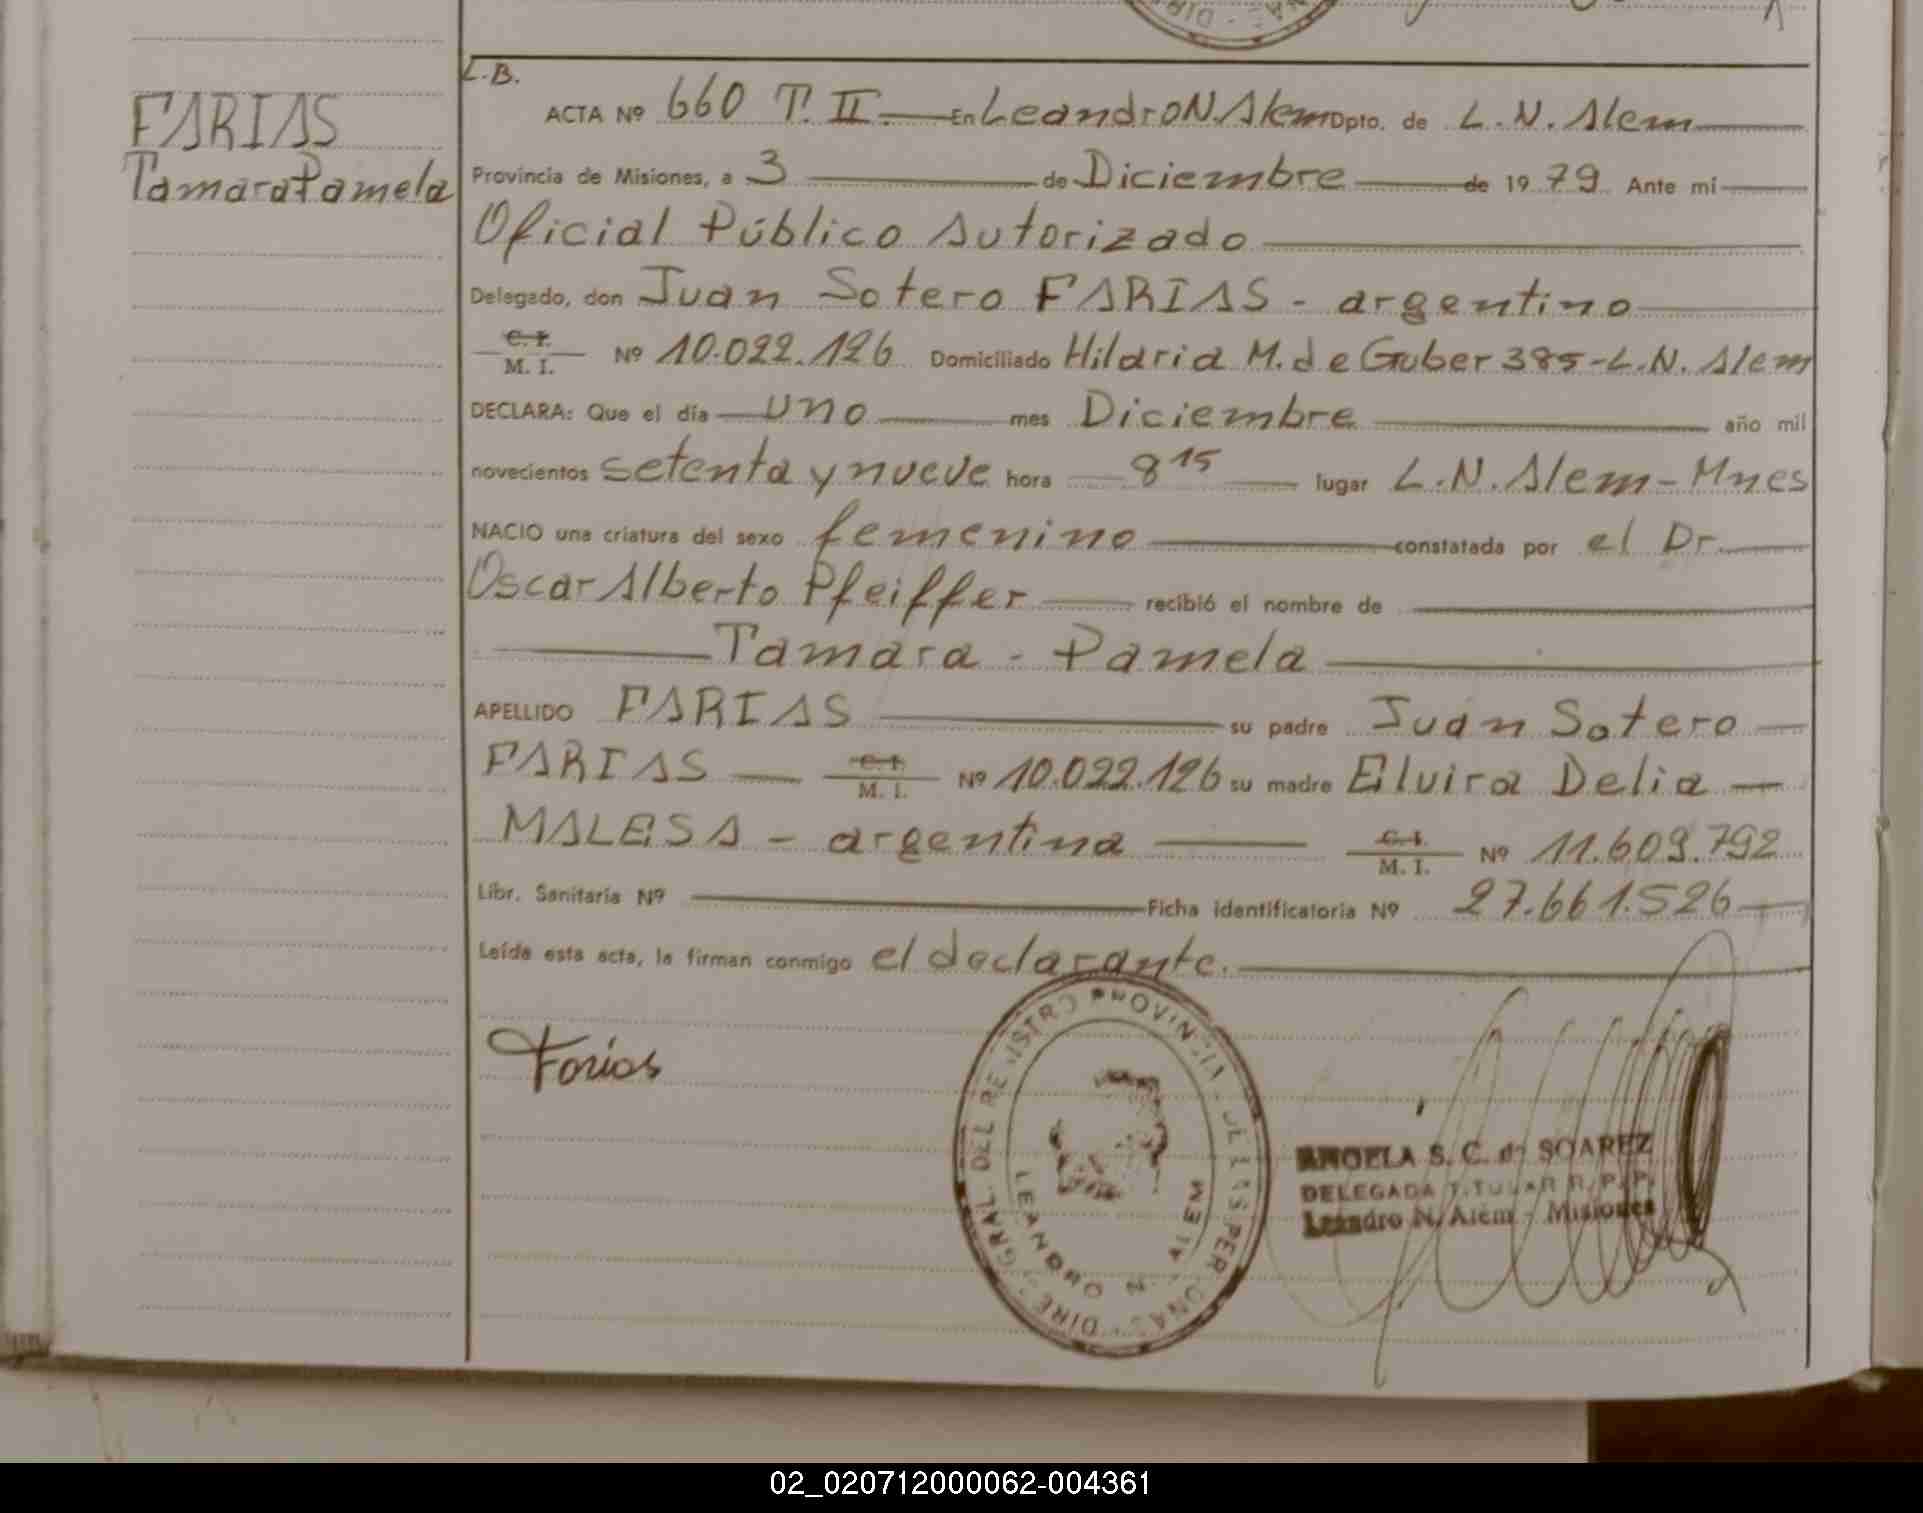 L.B.
FARIAS
Tamara Pamela
ACTA Nº 660 T. II. En Leandro N. Alem Dpto. de L. N. Alem
Provincia de Misiones, a 3 de Diciembre de 1979. Ante mí
Oficial Público Autorizado
Delegado, don Juan Sotero FARIAS - argentino
C. I.
M. I. Nº 10.022.126 Domiciliado Hilaria M. de Guber 385-L.N. Alem
DECLARA: Que el día uno mes Diciembre año mil
novecientos setenta y nueve hora 8 15 lugar L.N. Alem - Mnes
NACIO una criatura del sexo femenino constatada por el Dr.
Oscar Alberto Pfeiffer recibió el nombre de
Tamara - Pamela
APELLIDO FARIAS su padre Juan Sotero
FARIAS C. I. M. I. Nº 10.022.126 su madre Elvira Delia
MALESA - argentina C. I. M. I. Nº 11.609.792
Libr. Sanitaria Nº Ficha identificatoria Nº 27.661.526
Leída esta acta, la firman conmigo el declarante.
Farias
LEANDRO N. ALEM
ANGELA S. C. de SOAREZ
DELEGADA TITULAR R. P. P.
Leandro N. Alem - Misiones
02_020712000062-004361